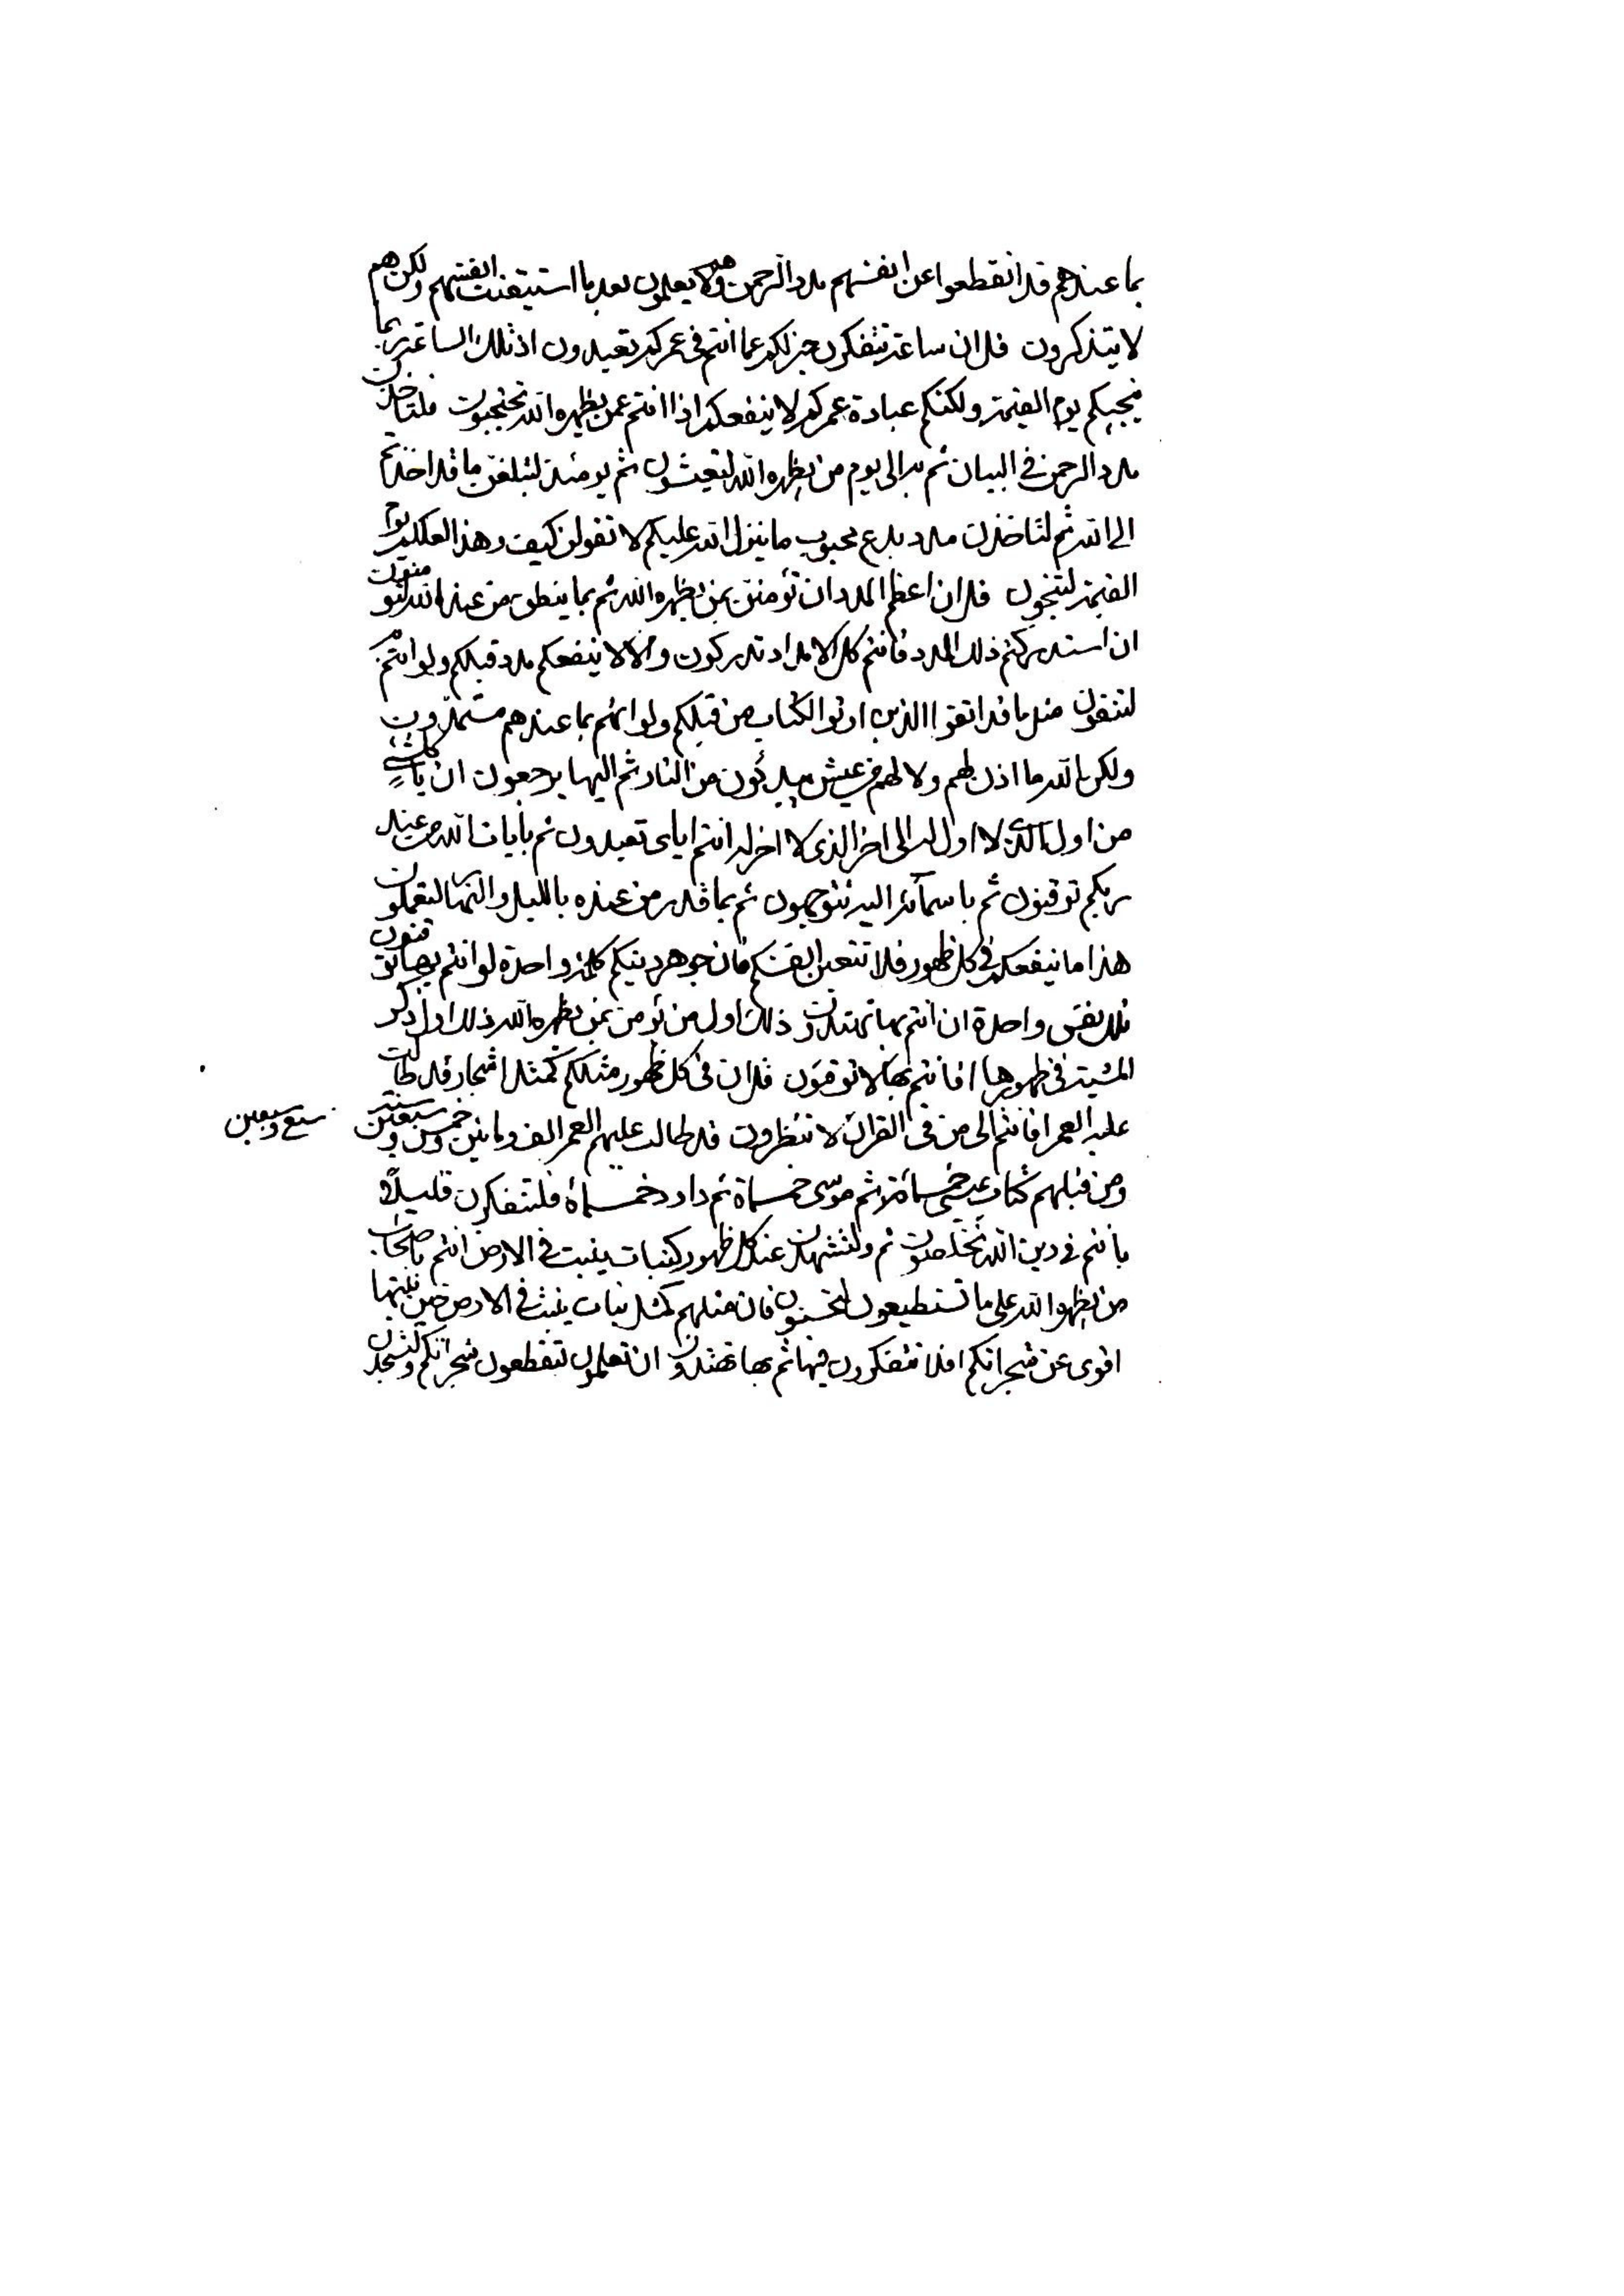 بما عندهم قد انقطعوا عن انفسهم مدد الرحمن وهم لا يعلمون بعد ما استيقنت انفسهم ولكن هم
لا يتذكرون قل ان ساعة تتفكرن خير لكم عما انتم في عمركم تعبدون اذ تلك الساعة ربما
ينجيكم يوم القيمة ولكنكم عبادة عمركم لا ينفعكم اذا انتم عمن يظهره الله تحتجبون فلتاخذن
مدد الرحمن في البيان ثم به الى يوم من يظهره الله لتعيشون ثم يومئذ لتبلغن ما قد اخذتم
الى الله ثم لتاخذن مدد بدع محبوب ما ينزل الله عليكم لا تقولن كيف وهذا لعلكم يوم
القيمة لتنجون قل ان اعظم المدد ان تؤمنن بمن يظهره الله ثم بما ينطق من عند الله لتوقنون
ان استدركتم ذلك المدد فانتم كل الامداد تدركون والا لا ينفعكم مدد قبلكم ولو انتم
لتتقون مثل ما قد اتقوا الذين اوتوا الكتاب من قبلكم ولو انهم بما عندهم مستمدون
ولكن الله ما اذن لهم ولا لهم من عيش يبدئون من النار ثم اليها يرجعون ان يا كلشئ
من اول الذي لا اول له الى اخر الذي لا اخر له انتم اياي تعبدون ثم بايات الله من عند
ربكم توقنون ثم باسمائه اليه تتوجهون ثم بما قدر من عنده بالليل والنهار لتعملون
هذا ما ينفعكم في كل ظهور فلا تتعبن انفسكم فان جوهر دينكم كلمة واحدة لو انتم بها توقنون
تلك نفس واحدة ان انتم بها تهتدون وذلك اول من يؤمن بمن يظهره الله ذلك اول ذكر
المشية في ظهورها افانتم بها لا توقنون قل ان في كل ظهور مثلكم كمثل اشجار قد طالت
عليه العمر افانتم الى من في القران لا تنظرون قد طالت عليهم العمر الف ومأتين وخمس وسبعين سنة
سبع وسبعين
ومن قبلهم كتاب عيسى خمسمأة ثم موسى خمسمأة ثم داود خمسمأة فلتتفكرن قليلا
ما انتم في دين الله تخلصون ثم ولتشهدن عند كل ظهور كنبات ينبت في الارض انتم باصحاب
من يظهره الله على ما تستطيعون لتحسنون فان مثلهم كمثل نبات ينبت في الارض حين نبتها
اقوى عن شجراتكم افلا تتفكرون فيها ثم بها تهتدون ان تعلمون لتقطعون شجراتكم ولتسجدن